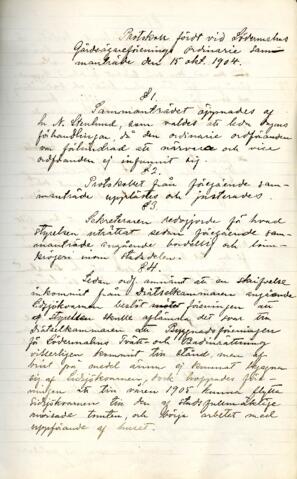 Protokoll fördt vid Södermalms
Gårdsägareförenings ordinarie sam-
manträde den 15 okt. 1904.
§ 1.
Sammanträdet öppnades af
hr N. Stenlund, som valdes att leda dagens
förhandlingar, då den ordinarie ordföranden
var förhindrad att närvara och vice
ordföranden ej infunnit sig.
§ 2.
Protokollet från föregående sam-
manträde upplästes och justerades.
§ 3
Sekreteraren redogjorde på hvad
styrelsen uträttat sedan föregående sam-
manträde angående bordell och
krogen inom stadsdelen.
§ 4.
Sedan ordf. anmält att en skrifvelse
inkommit från drätselkammaren angående
beslöt mötet föreningen att
af styrelsen skulle aflämna det svar till
drätselkammaren att Byggnadsföreningen
för Södermalms Tvätt- och Badinrättning
visserligen kommit till stånd, men af
brist på medel ännu ej kunnat bygga
sig af dock hoppades före-
ningen att till våren 1905 kunna flytta
till den af stadsfullmäktige
anvisade tomten, och börja arbetet med
uppförande af huset.